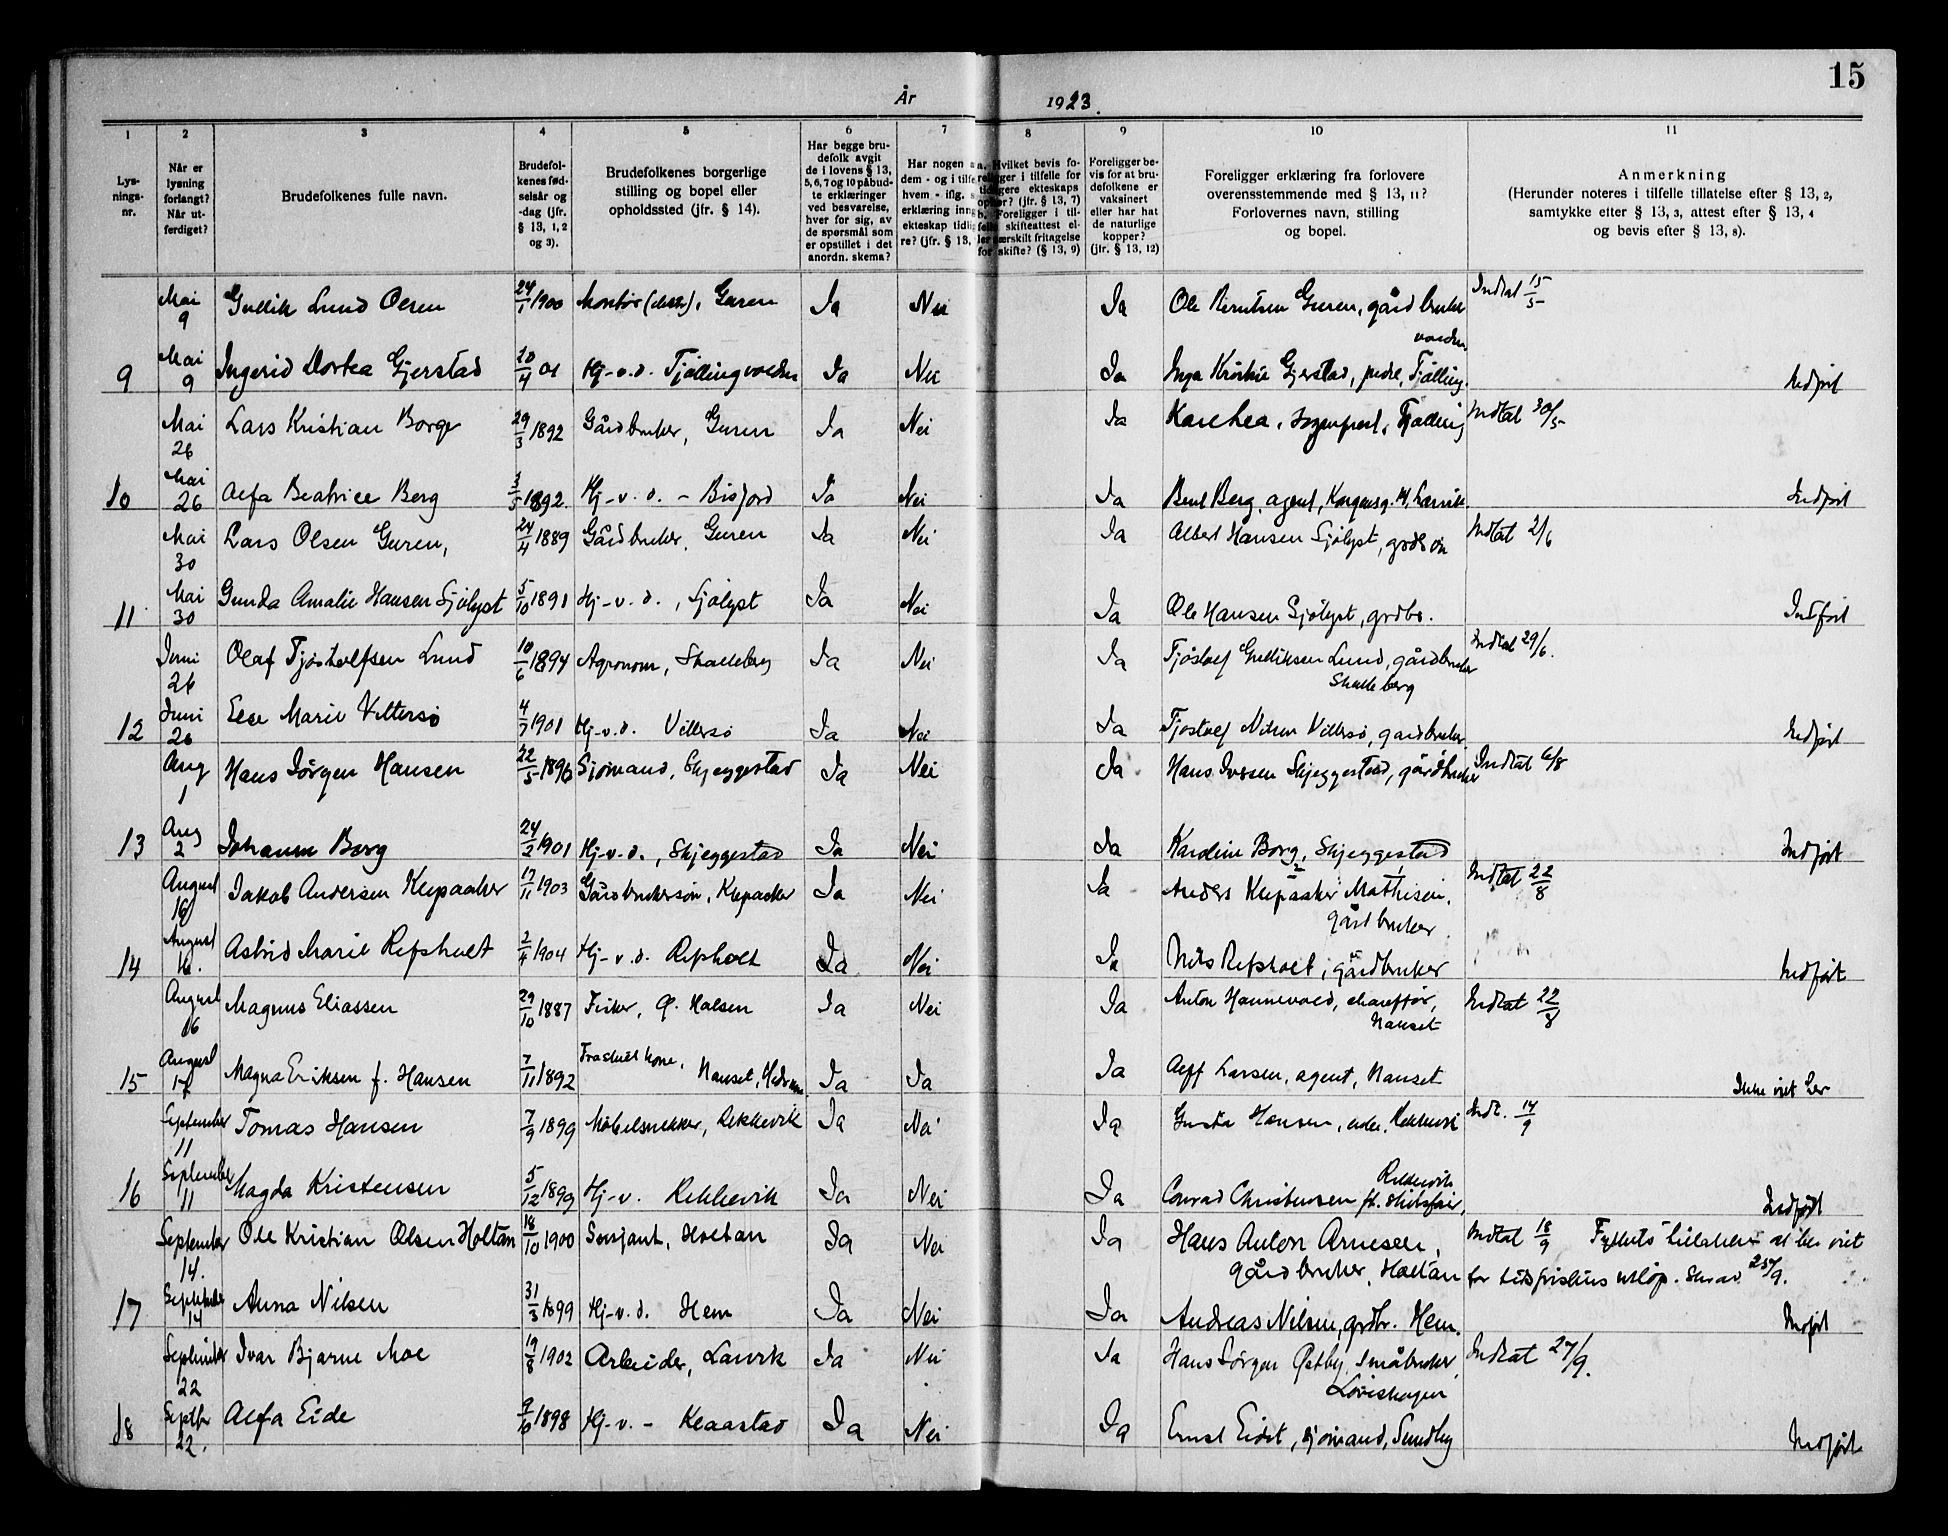 15
År 1923.
1 2 3 4 5 6 7 8 9 10 11
Lys-
nings-
nr.
Når er
lysning
forlangt?
Når ut-
ferdiget?
Brudefolkenes fulle navn.
Brudefol-
kenes fød-
selsår og
-dag (jfr.
§ 13, 1, 2
og 3).
Brudefolkenes borgerlige
stilling og bopel eller
opholdssted (jfr. § 14).
Har begge bru-
defolk avgit
de i lovens § 13,
5, 6, 7 og 10 påbud-
te erklæringer
ved besvarelse,
hver for sig, av
de spørsmål som
er opstillet i det
anordn. skema?
Har nogen a
dem - og i tilfe
hvem - iflg. s
erklæring inng
ekteskap tidlig
re? (jfr. § 13,
a. Hvilket bevis fo-
religger i tilfelle for
tidligere ekteskaps
ophør? (jfr. § 13, 7)
b. Foreligger i til-
felle skifteattest el-
ler særskilt fritagelse
for skifte? (§ 13, 9)
Foreligger be-
vis for at bru-
defolkene er
vaksinert
eller har hat
de naturlige
kopper?
(jfr. § 13, 12)
Foreligger erklæring fra forlovere
overensstemmende med § 13, 11?
Forlovernes navn, stilling
og bopel.
Anmerkning
(Herunder noteres i tilfelle tillatelse efter § 13, 2,
samtykke efter § 13, 3, attest efter § 13, 4
og bevis efter § 13, 8).
Mai 9 Gullik Lund Olsen 24/1 1900 Montør Guren Ja Nei Ja Ole Guren, gårdbruker Indtat 15/5
9 Mai 9 Ingerid Dortea Gjerstad 20/4 01 Hj-v.d. Tjøllingvolden Ja Nei Ja Inga Gjerstad, Tjølling volden Indført
Mai 26 Lars Kristian Borge 29/3 1892 Gårdbruker, Guren Ja Nei Ja Kare Lea, sogneprest, Tjølling Indtat 30/5
10 Mai 26 Alfa Beatrice Berg 3/5 1892. Hj-v.d. - Bisjord Ja Nei Ja Bent Berg, agent, Larvik. Indført
Mai 30 Lars Olsen Guren, 24/4 1889 Gårdbruker, Guren Ja Nei Ja Albert Hansen Sjølyst, Indtat 2/6
11 Mai 30 Gunda Amalie Hansen Sjølyst 5/10 1891 Hj-v.d., Sjølyst Ja Nei Ja Ole Hansen Sjølyst, grdbr. Indført
Juni 26 Olaf Tjøstolfsen Lund 10/6 1894 Agronom, Skalleberg Ja Nei Ja Tjøstolf Gulliksen Lund, gårdbruker Skalleberg Indtat 29/6.
12 Juni 26 Else Marie Vittersø 4/7 1901 Hj-v.d. Vittersø Ja Nei Ja Tjostolf Nilsen Vittersø, gardbruker Indført
Aug 1 Hans Jørgen Hansen 22/5 1896 Sjømand, Skjeggestad Ja Nei Ja Hans Iversen Skjeggestad, gårdbruker Indtat 6/8
13 Aug 2 Johanne Borg 24/2 1901 Hj-v.d., Skjeggestad Ja Nei Ja Karoline Borg, Skjeggestad Indført
August 16 Jakob Andersen Klepaaker 17/11 1903 Gårdbrukersøn, Klepaaker Ja Nei Ja Anders Klepaaker Mathisen, gårdbruker Indtat 22/8
14 August 16. Astrid Marie Refsholt 2/4 1904 Hj-v.d. Refsholt Ja Nei Ja Nils Refsholt, gårdbruker Indført
August 16 Magnus Eliassen 29/10 1887 Fisker, Ø. Halsen Ja Nei Ja Anton Hannevold, chauffør, Nanset Indtat 22/8
15 August 17 Magna Eriksen f. Hansen 7/11 1892 Fraskilt kone, Nanset, Hedrum Ja Ja Ja Alff Larsen, agent, Nanset Ikke viet her
September 11 Tomas Hansen 7/9 1899 Møbelsnekker, Rekkevik Ja Nei Ja Gusta Hansen, enke, Rekkevik Indt. 14/9
16 September 11 Magda Kristensen 5/12 1899 Hj-v. Rekkevik Ja Nei Ja Conrad Christensen Rekkevik Indført
September 14. Ole Kristian Olsen Holtan 18/10 1900 Sersjant, Holtan Ja Nei Ja Hans Anton Arnesen, gårdbruker, Holtan Indtat 18/9 Fylkets tillatelse at bli viet før tidsfristens utløp. Skriv. 25/9.
17 September 14 Anna Nilsen 31/3 1899 Hj-v.d. Hem Ja Nei Ja Andreas Nilsen, grdbr. Hem. Indført
September 22 Ivar Bjarne Moe 19/8 1902 Arbeider, Larvik Ja Nei Ja Hans Jørgen Østby, småbruker, Indtat 27/9.
18 Septbr 22. Alfa Eide 9/10 1898 Hj-v. - Klaastad Ja Nei Ja Ernst Eidet, sjømand, Sundby Indført